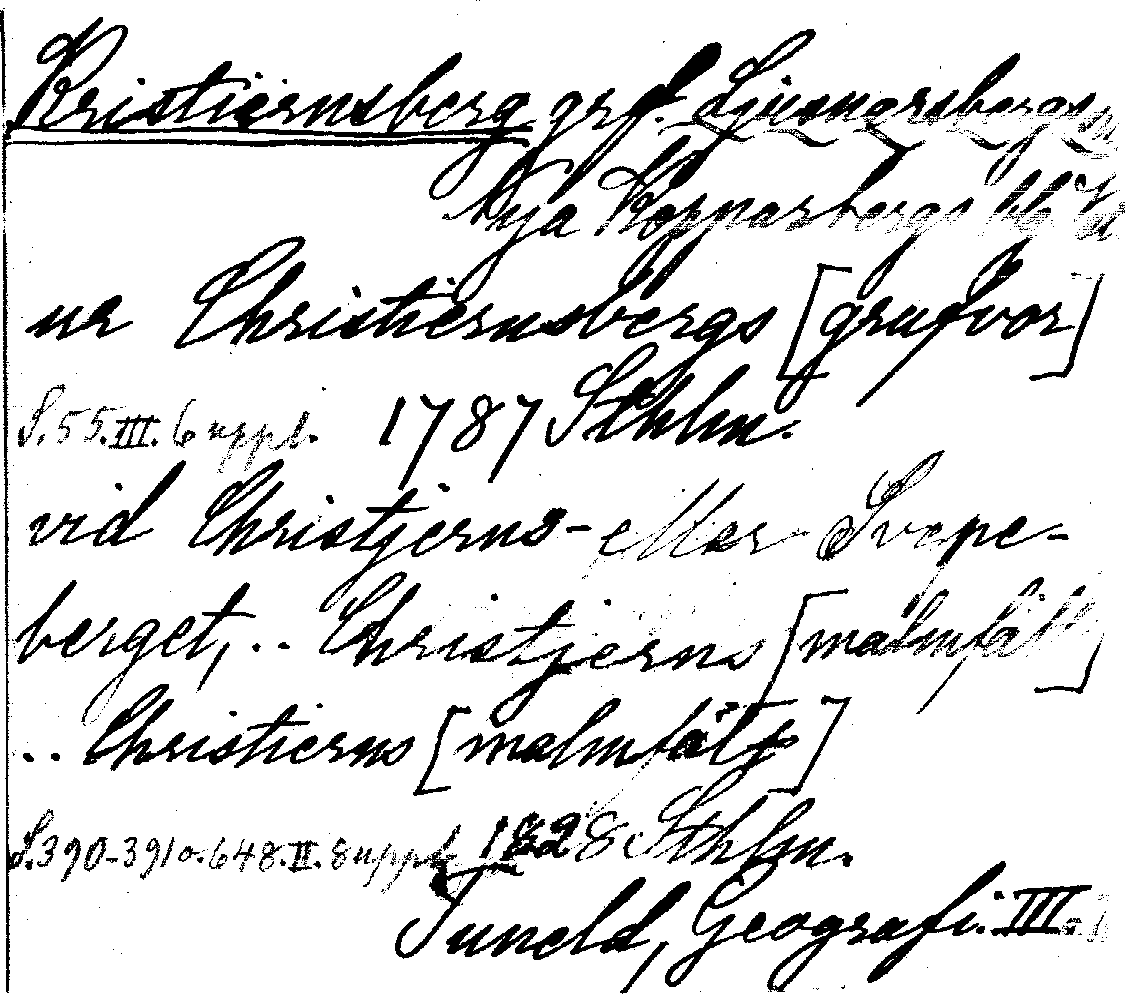 Kristiernsberg grf. Ljusnarsbergs
Nya Kopparbergs
ur Christiernsbergs [grufvor]
S. 55. III. 6 uppl. 1787 Sthlm.
vid Christjerns- eller Svepe-
berget, .. Christjerns [malmfält]
.. Christierns [malmfält]
S. 390-391 o. 648. II. 8 uppl. 1828 Sthlm.
Tuneld, Geografi. III.